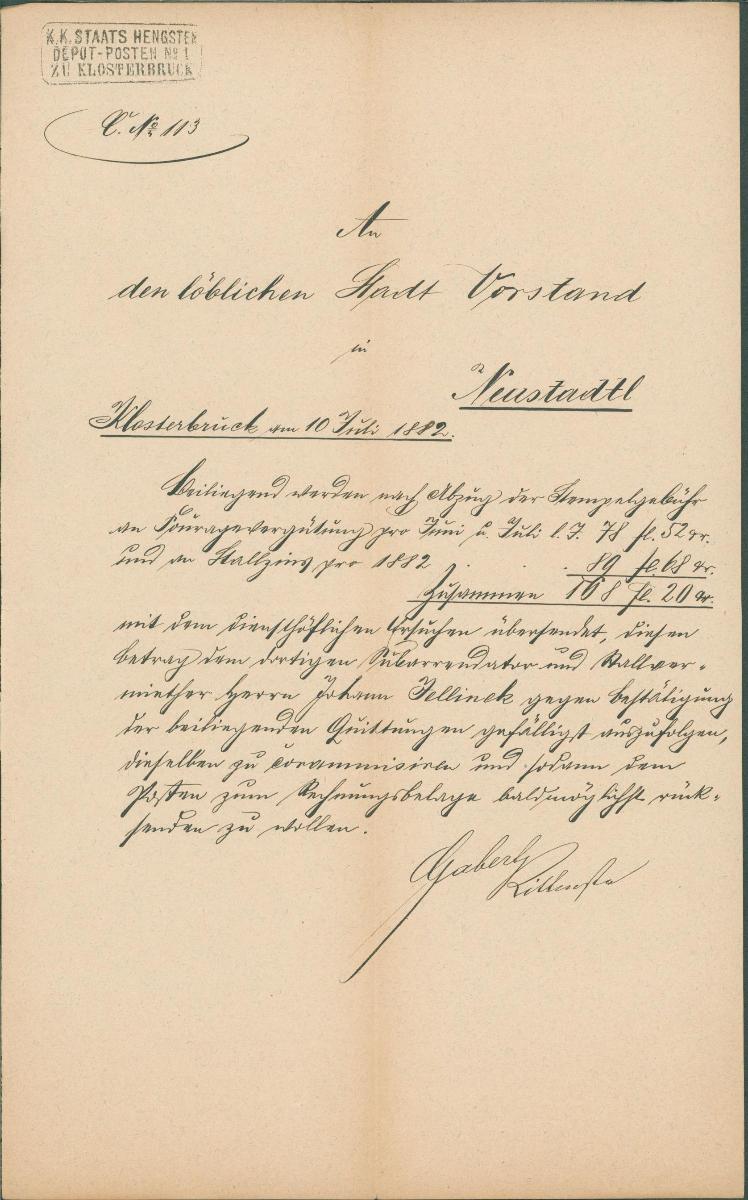 K.K. STAATS HENGSTEN
DEPOT-POSTEN No 1
ZU KLOSTERBRUCK
E. No 113
An
den löblichen Stadt Vorstand
in
Neustadtl
Klosterbruck am 10 Juli 1882.
Beiliegend werden nach Abzug der Stempelgebühr
an Fouragevergütung pro Juni u. Juli l. J. 78 fl. 52 xr.
und an Stallzins pro 1882 . . . 89 fl. 68 xr.
Zusammen 168 fl. 20 xr.
mit dem diensthöflichen Ersuchen übersendet, diesen
Betrag dem dortigen Subarrendator und Stallver-
miether Herrn Johann Jellinek gegen Bestätigung
der beiliegenden Quittungen gefälligst auszufolgen,
dieselben zu corammisiren und sodann dem
Posten zum Rechnungsbelage baldmöglichst rück-
senden zu wollen.